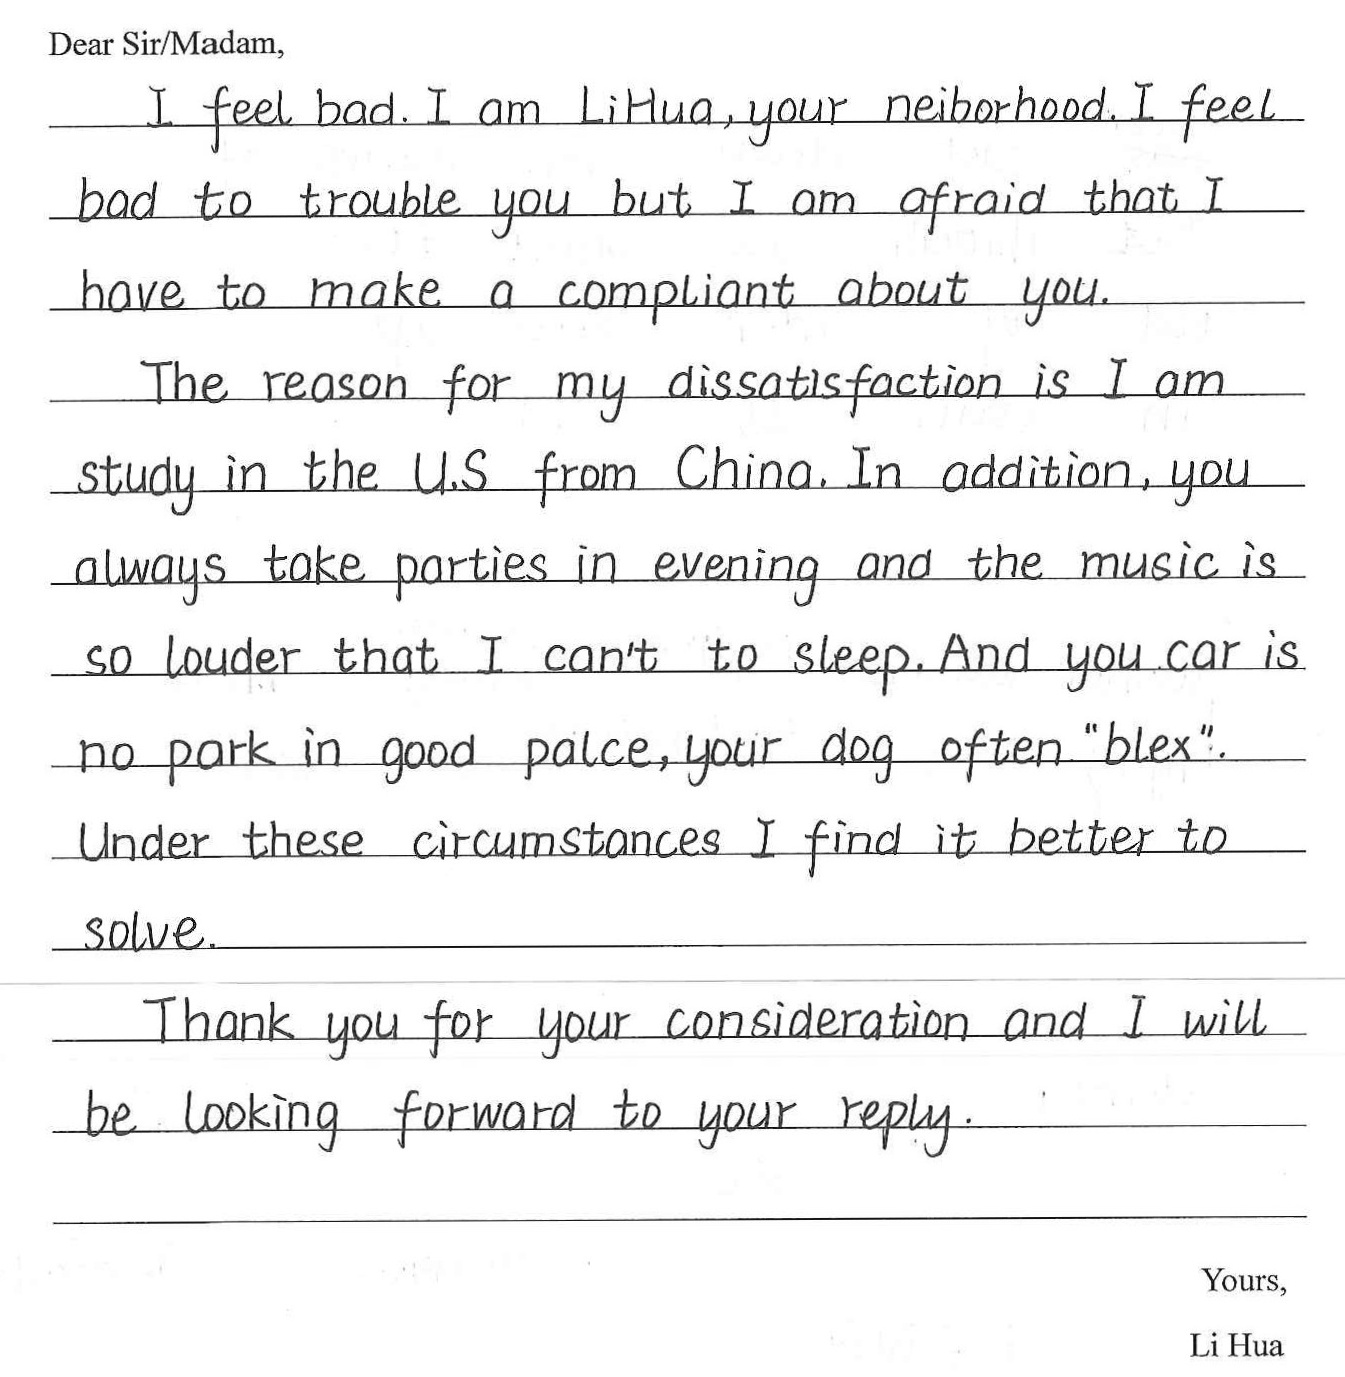 Dear Sir/Madam,
I feel bad. I am LiHua, your neiborhood. I feel
bad to trouble you but I am afraid that I
have to make a compliant about you.
The reason for my dissatisfaction is I am
study in the U.S from China. In addition, you
always take parties in evening and the music is
so louder that I can't to sleep. And you car is
no park in good palce, your dog often "blex".
Under these circumstances I find it better to
solve.
Thank you for your consideration and I will
be looking forward to your reply.
Yours,
Li Hua